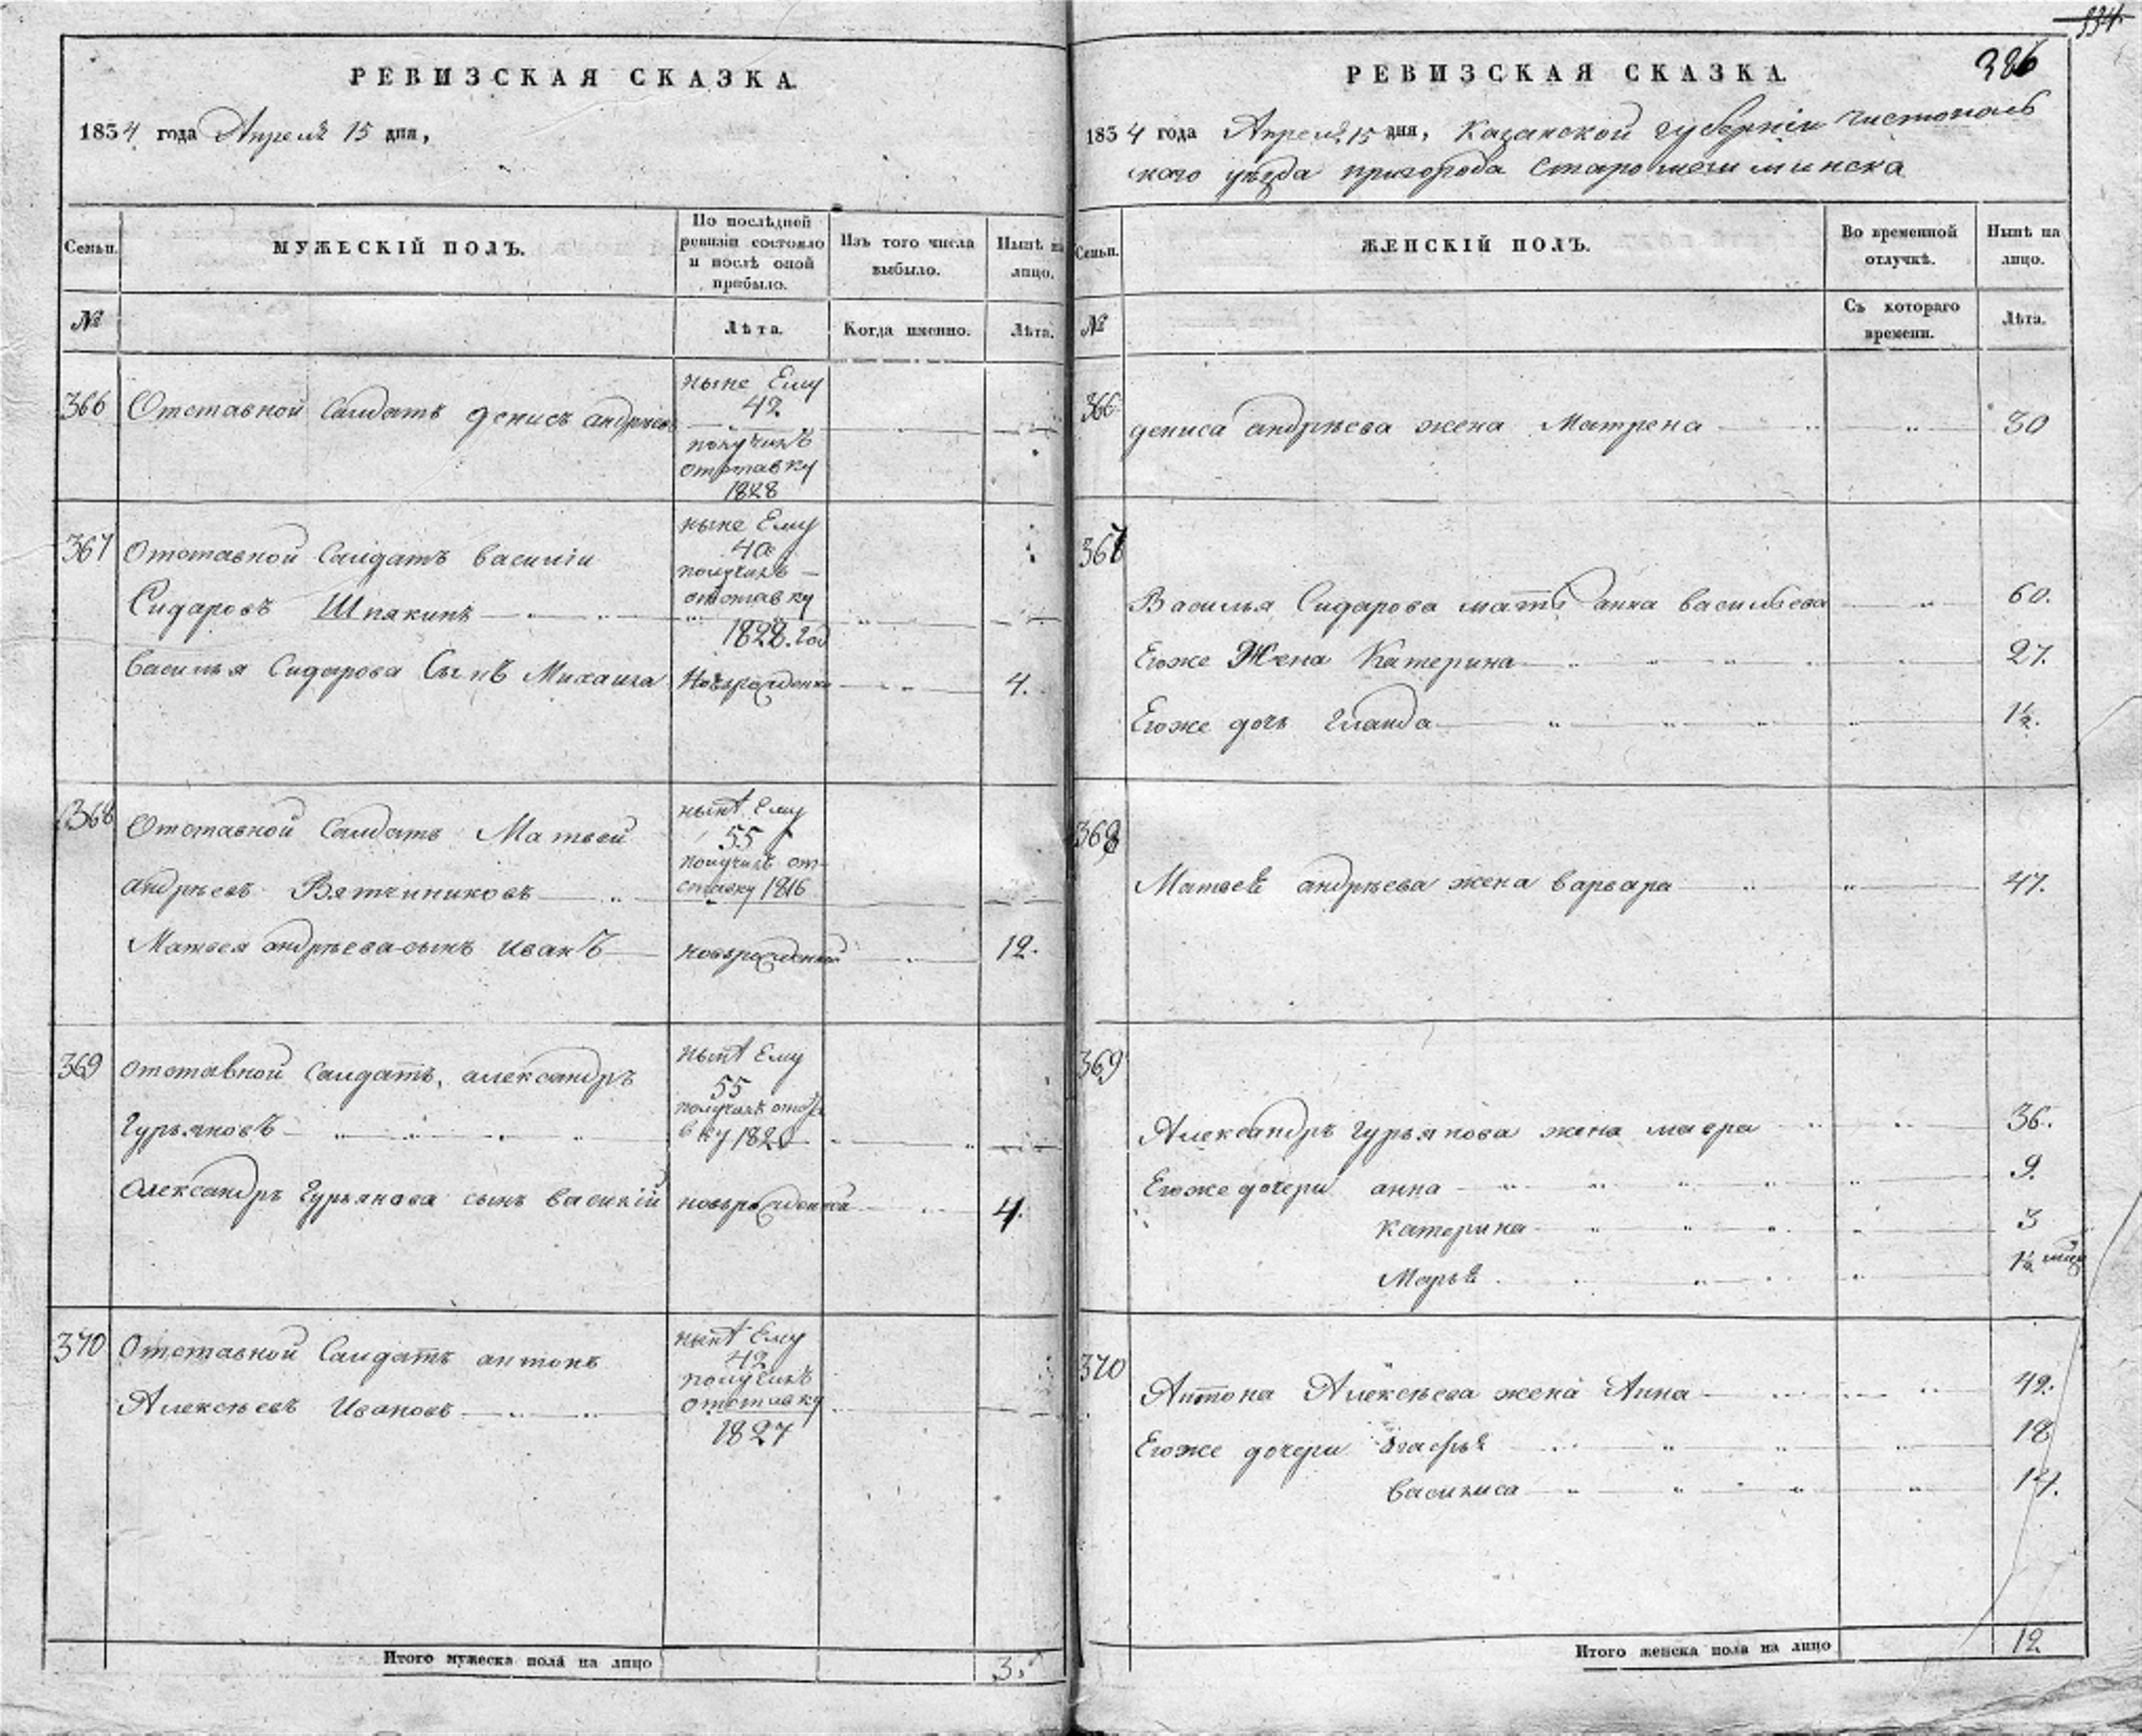 РЕВИЗСКАЯ СКАЗКА.
1834 года Апреля 15 дня,
Семьи. МУЖЕСКІЙ ПОЛЪ. По послѣдней ревизіи состояло и послѣ оной прибыло. Изъ того числа выбыло. Нынѣ на лицо.
№ Лѣта. Когда именно. Лѣта.
ныне Ему
366 Отставной Салдатъ денисъ андреевъ 42
получилъ
отставку
1828
ныне Ему
367 Отставной Салдатъ василіи 40
получилъ
отставку
Сидаровъ Шпякинъ
1828. год
василья Сидарова Сынъ Михаила Новърожденны 4.
нынѣ Ему
368 Отставной Салдатъ Матвей 55
получилъ от-
андрѣевъ Вятчиниковъ ставку 1816
Матвея андрѣева сынъ иванъ новърожденный 12.
нынѣ Ему
369 отставной Салдатъ, александръ 55
получилъ отста
Гурьяновъ вку 182
Александръ Гурьянова сынъ василій новърожденной 4.
нынѣ Ему
370 Отставной Салдатъ антонъ 42
получилъ
Алексѣевъ Ивановъ отставку
1827
Итого мужеска пола на лицо 3.
334
386
РЕВИЗСКАЯ СКАЗКА.
1834 года Апреля 15 дня, Казанской губерніи чистополь
скаго уѣзда пригорода Старошешминска
Семьи. ЖЕНСКІЙ ПОЛЪ. Во временной отлучкѣ. Нынѣ на лицо.
№ Съ котораго времени. Лѣта.
366
дениса андрѣева жена Матрена 30
367
Василья Сидарова мать анна васильева 60.
Егоже Жена Катерина 27.
Егоже дочь 1½.
368
Матвея андрѣева жена варвара 47.
369
Александръ гурьянова жена мавра 36.
Егоже дочери анна 9.
Катерина 3
Марья 1½
370
Антона Алексѣева жена Анна 42.
Егоже дочери агафья 18
василиса 14.
Итого женска пола на лицо 12